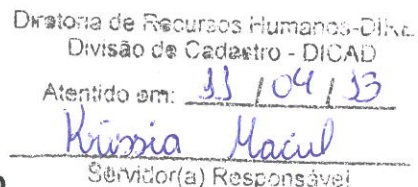 Diretoria de Recursos Humanos-DIRH
Divisão de Cadastro - DICAD
Atentido em: 11 / 04 / 13
Krissia Maciel
Servidor(a) Responsável